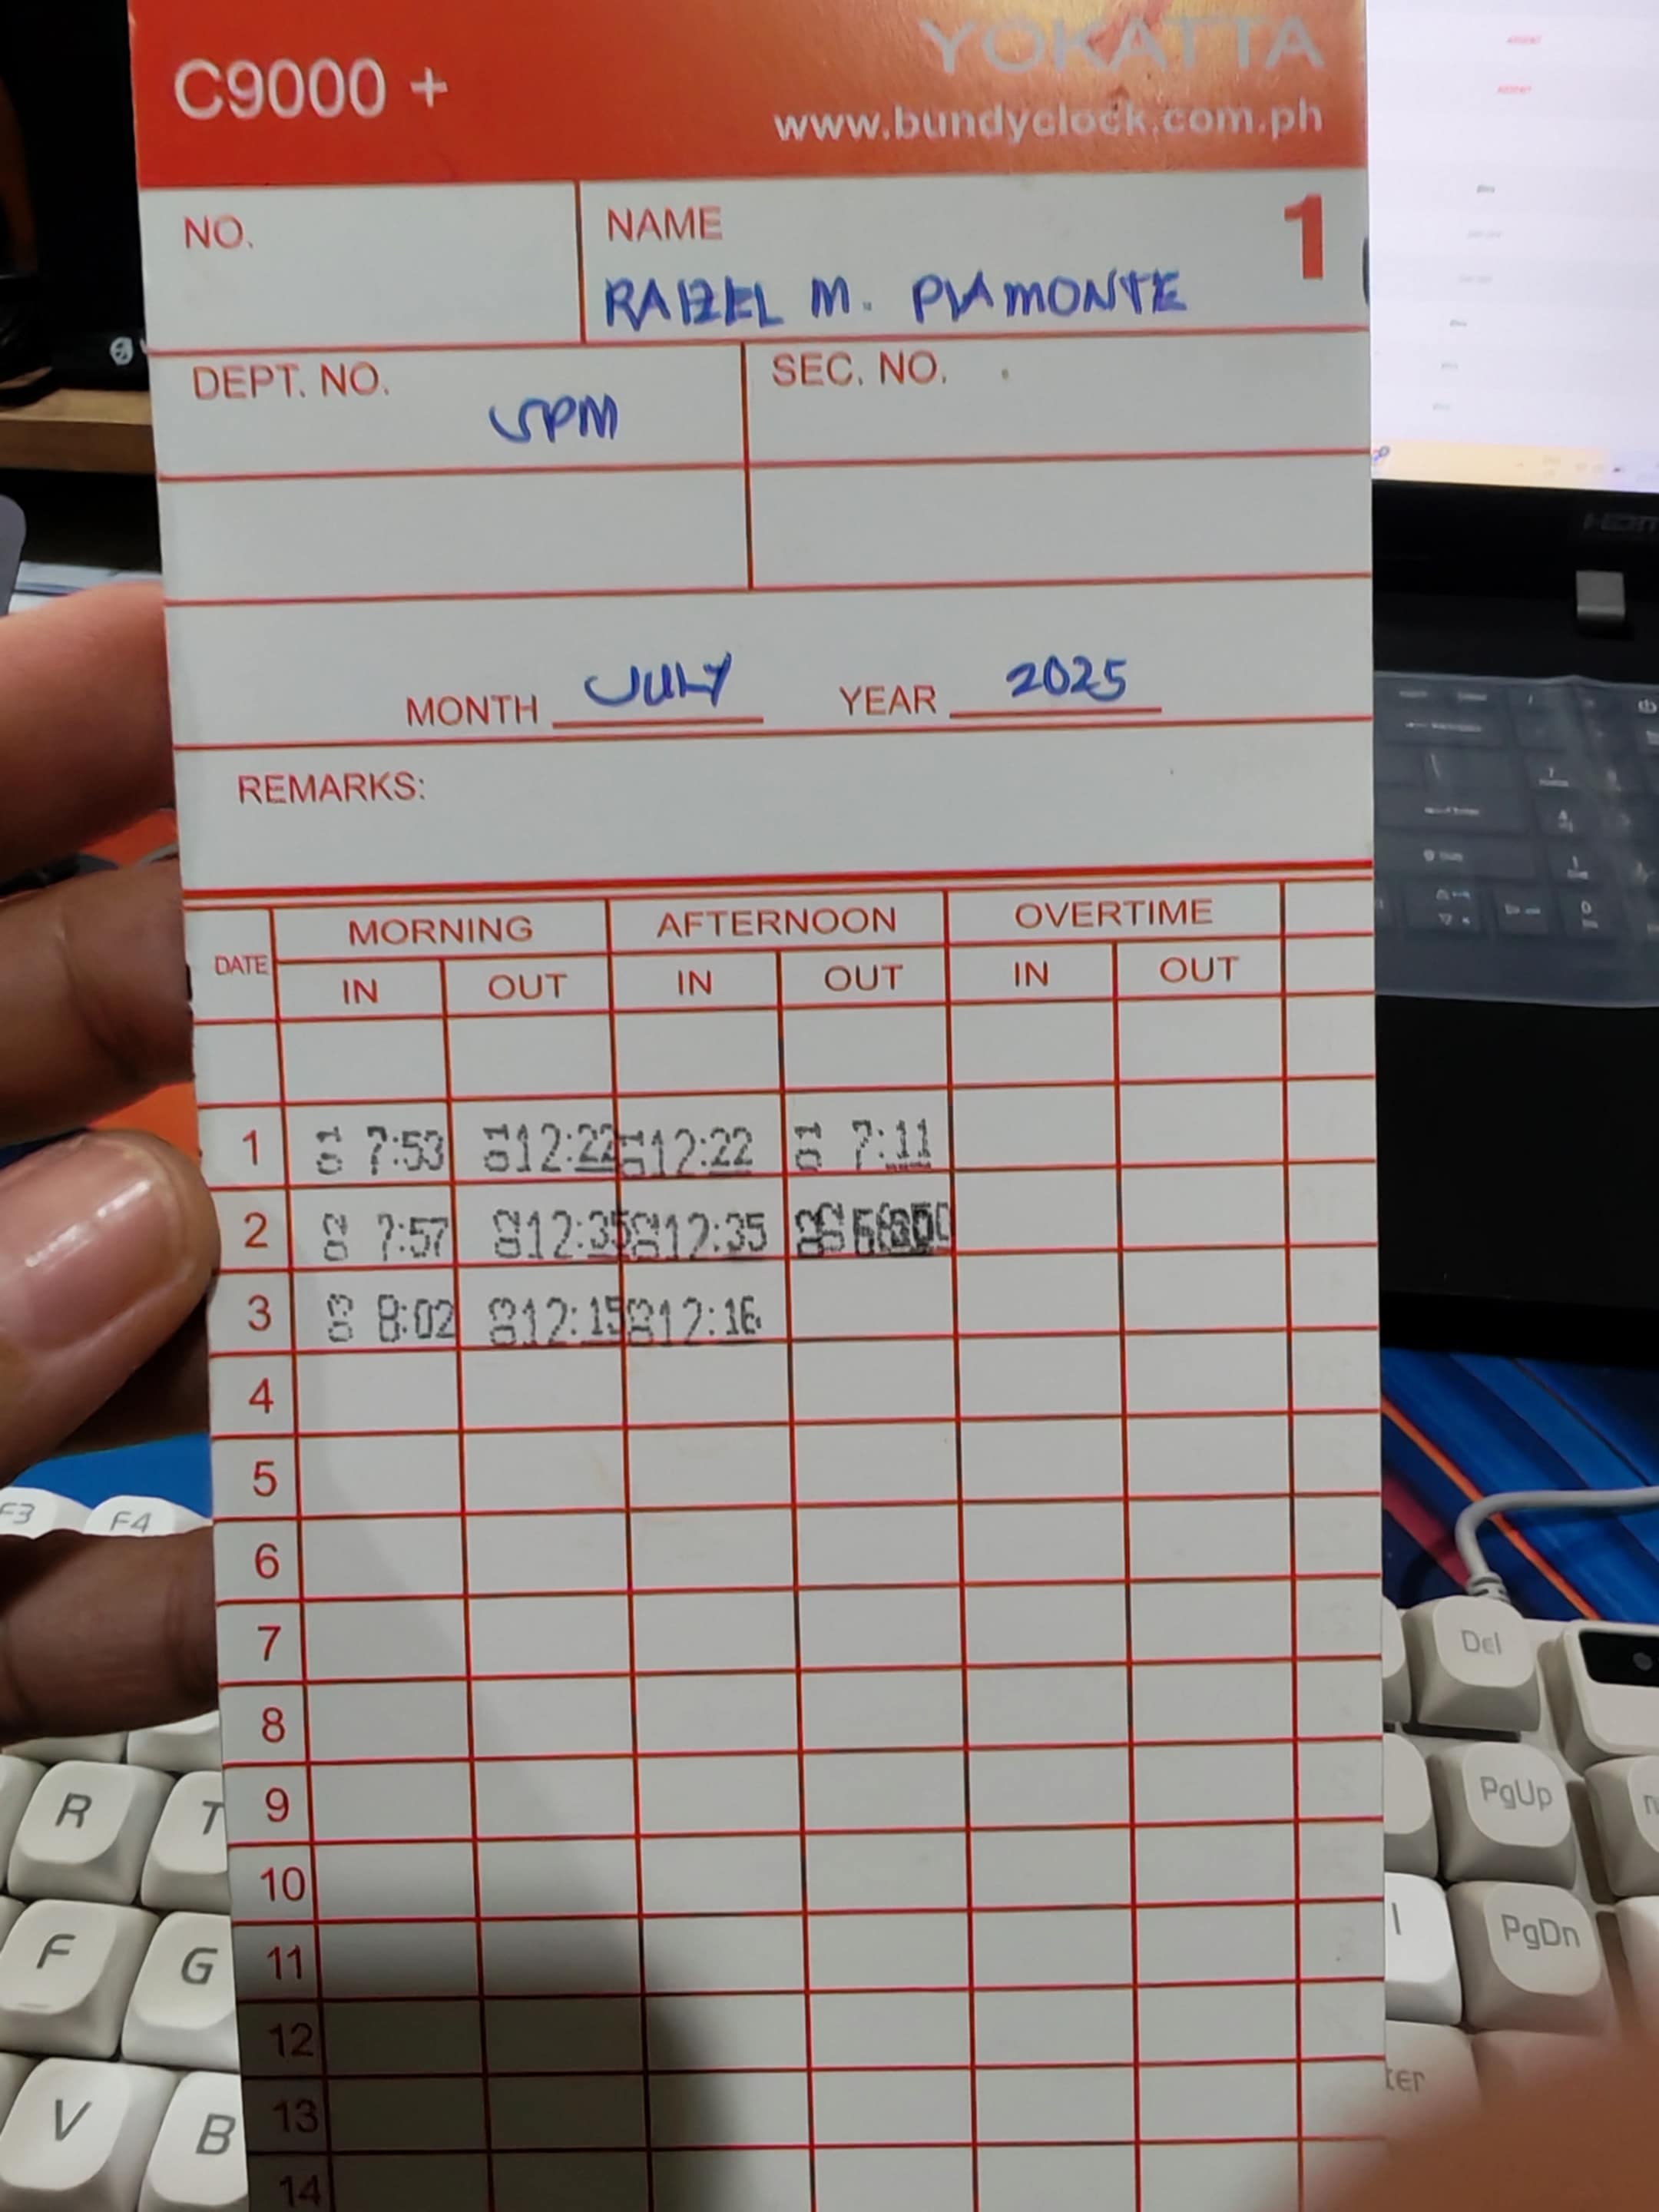 C9000 +
YOKATTA
www.bundyclock.com.ph
NO.
NAME
1
RAIZEL M. PIAMONTE
DEPT. NO.
SEC. NO.
MONTH JULY YEAR 2025
REMARKS:
DATE MORNING AFTERNOON OVERTIME
IN OUT IN OUT IN OUT
1 01 7:53 01 12:22 01 12:22 01 7:11
2 02 7:57 02 12:35 02 12:35
3 03 8:02 03 12:15 03 12:16
4
5
6
7
8
9
10
11
12
13
14
F3 F4
R T
F G
V B
Del
PgUp
PgDn